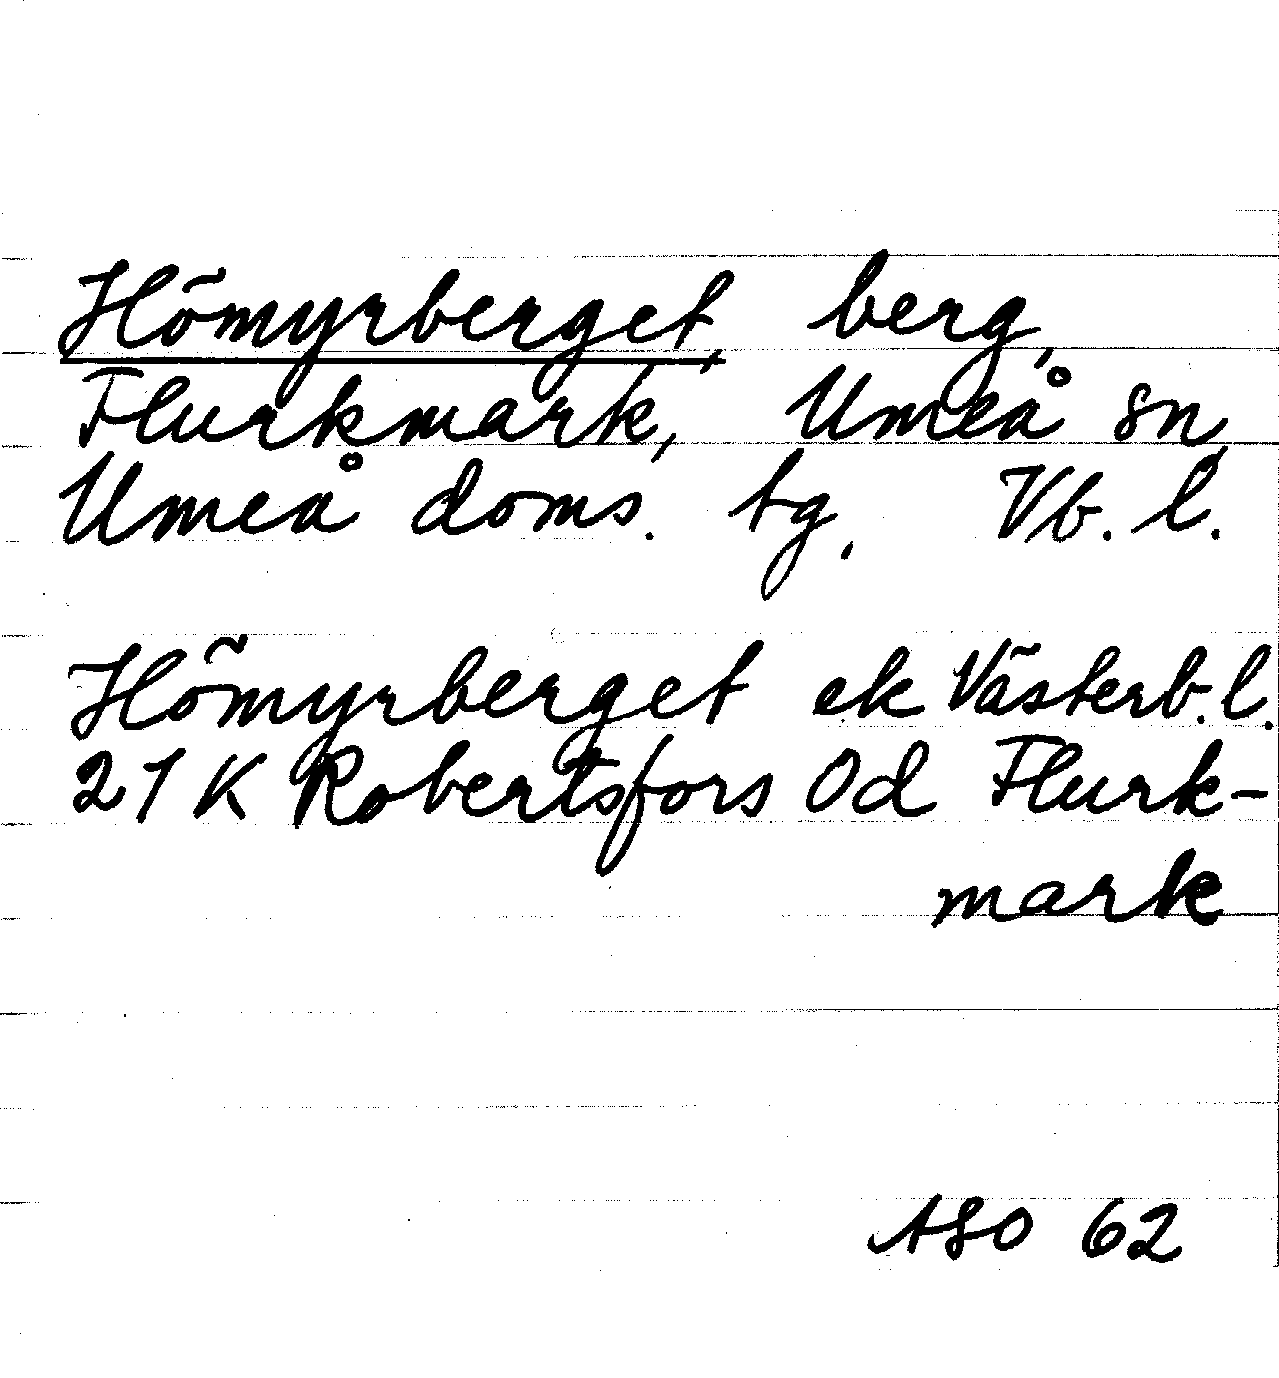 Hömyrberget, berg,
Flurkmark, Umeå sn,
Umeå doms. tg. Vb. l.
Hömyrberget ek Västerb. l.
21 K Robertsfors 0d Flurk-
mark
ASO 62